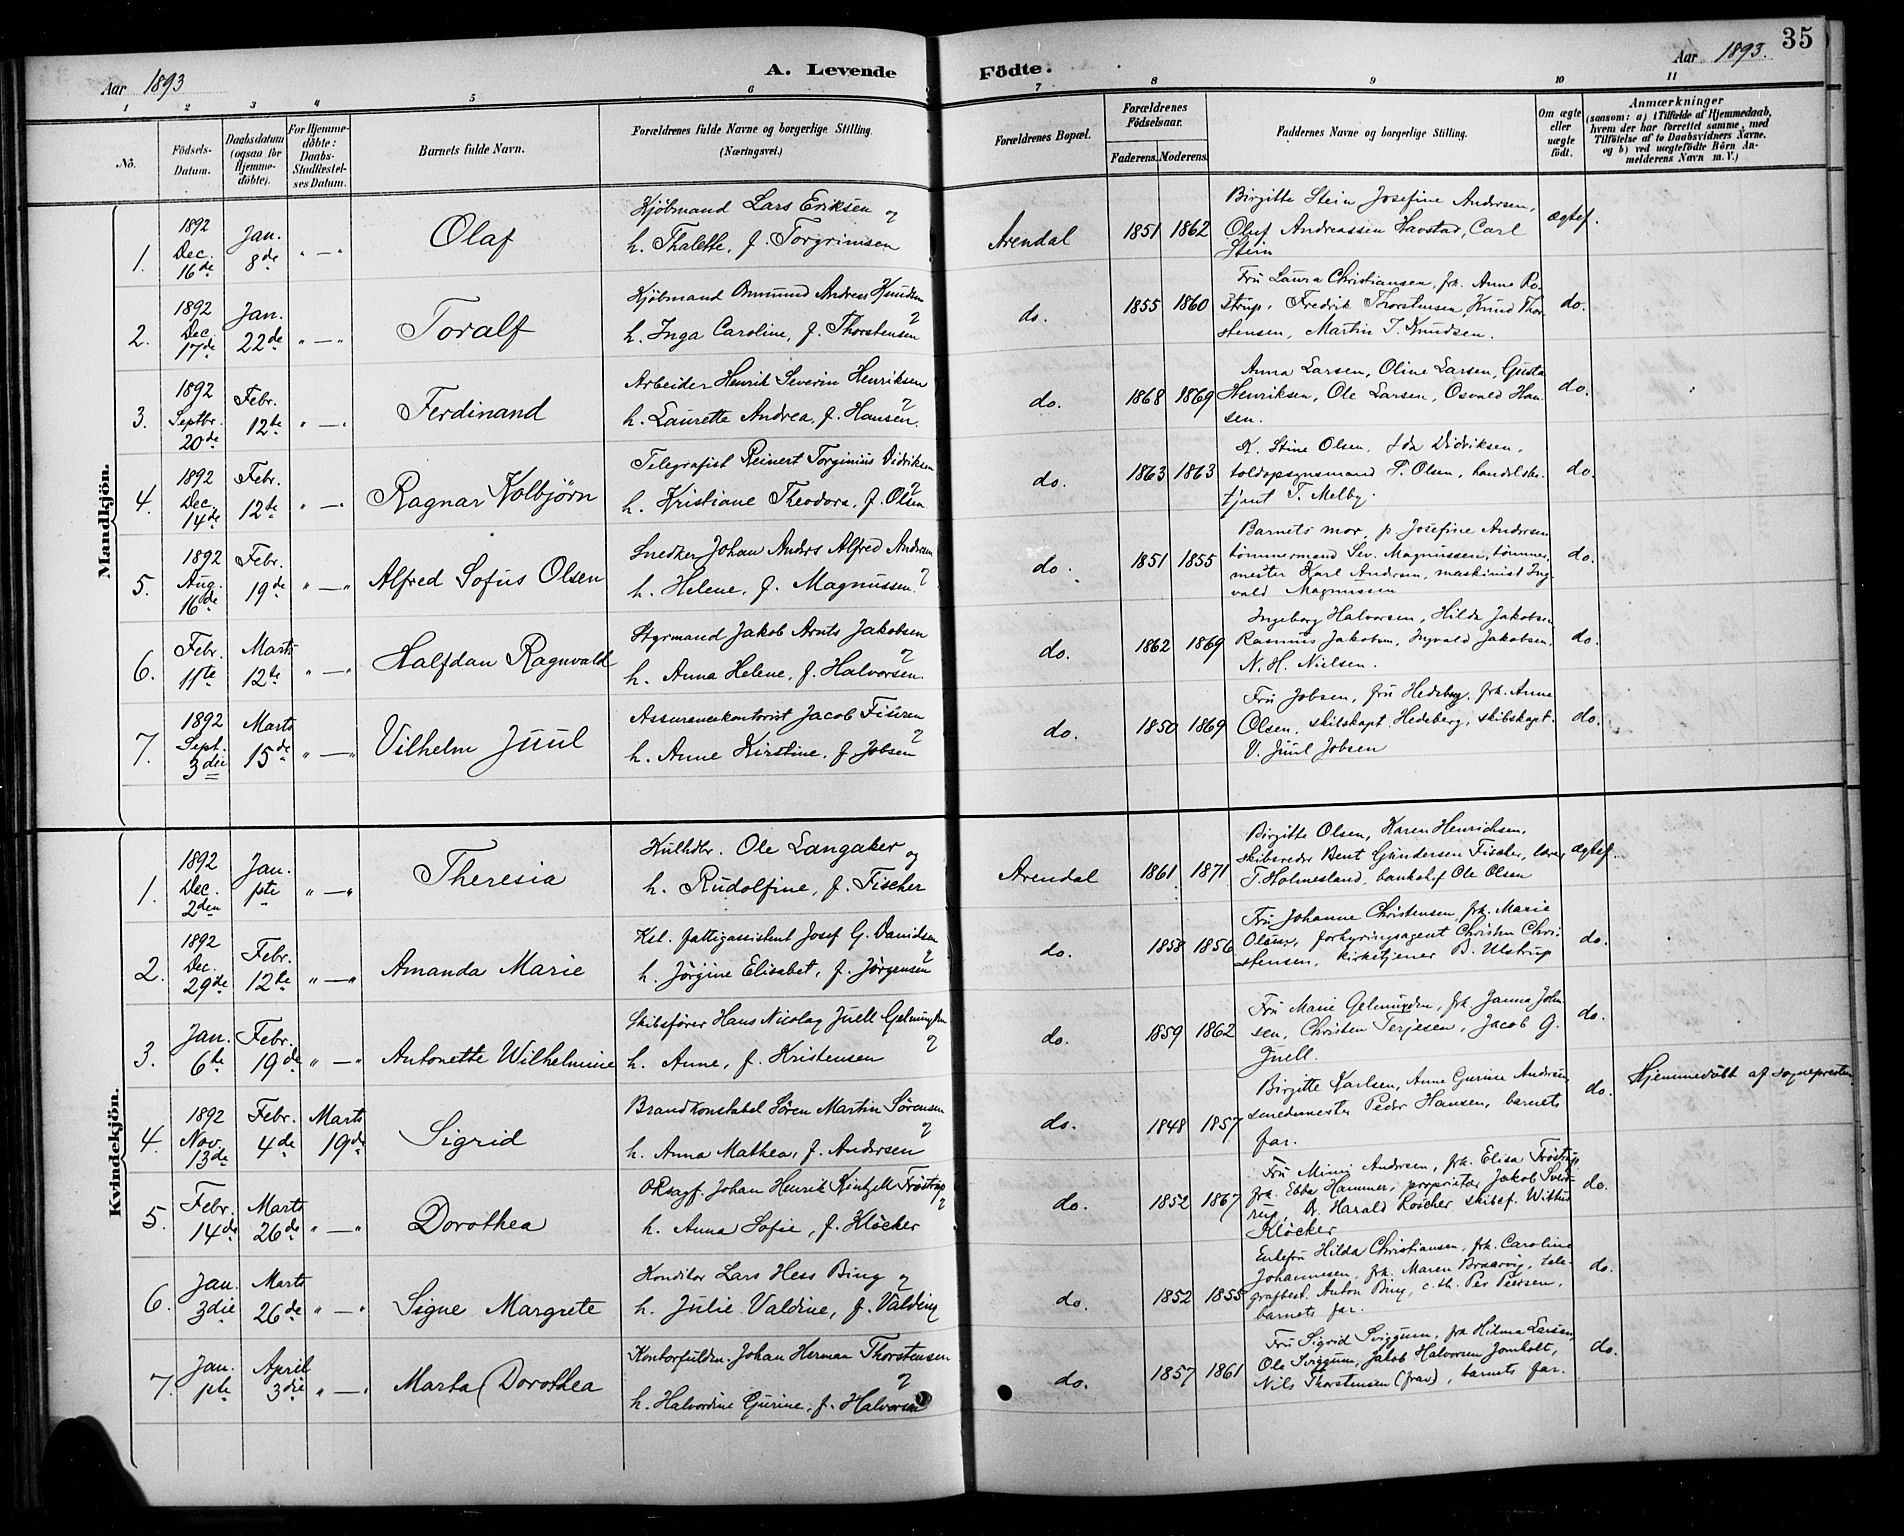 35
Aar 1893
A. Levende Födte.
Aar 1893.
1 2 3 4 5 6 7 8 9 10 11
No.
Födsels-Datum.
Daabsdatum (ogsaa for Hjemme-döbte).
For Hjemme-döbte: Daabs-Stadfæstel-ses Datum.
Barnets fulde Navn.
Forældrenes fulde Navne og borgerlige Stilling.
(Næringsvei.)
Forældrenes Bopæl.
Forældrenes Födselsaar.
Faderens. Moderens.
Faddernes Navne og borgerlige Stilling.
Om ægte eller uægte födt.
Anmærkninger
(saasom: a) i Tilfælde af Hjemmedaab,
hvem der har forrettet samme, med
Tilföielse af to Daabsvidners Navne.
og b) ved uægtefödte Börn An-
melderens Navn m. V.)
Mandkjön.
1. 1892 Dec. 16de Jan. 8de " — " Olaf
Kjøbmand Lars Eriksen og
h. Thalette, f. Torgrimsen
Arendal 1851 1862
Birgitte Stein Josefine Andersen,
Oluf Andreassen Havstad, Carl
Stein
ægtef.
2. 1892 Dec. 17de Jan. 22de " — " Toralf
Kjøbmand Omund Andreas Knudsen
h. Inga Caroline, f. Thorstensen
do. 1855 1860
Fru Laura Christiansen, frk. Anne Ro-
strup, Fredrik Thorstensen, Knud Thor-
stensen, Martin T. Knudsen.
do.
3. 1892 Septbr. 20de Febr. 12te " — " Ferdinand
Arbeider Henrik Severin Henriksen
h. Laurette Andrea, f. Hansen
do. 1868 1869
Anna Larsen, Oline Larsen, Gusta
Henriksen, Ole Larsen, Osvald Han-
sen.
do.
4. 1892 Dec. 14de Febr. 12te " — " Ragnar Kolbjørn
Telegrafist Reinert Torginius Didriksen
h. Kristiane Theodora, f. Olsen
do. 1863 1863
Stine Olsen, Ida Didriksen,
toldopsynsmand P. Olsen, handelsbe-
tjent T. Melby.
do.
5. 1892 Aug. 16de Febr. 19de " — " Alfred Sofus Olsen
Snedker Johan Anders Alfred Andersen
h. Helene, f. Magnussen
do. 1851 1855
Barnets mor, p. Josefine Andersen
tømmermand Sev. Magnussen, tømmer-
mester Karl Andersen, maskinist Ing-
vald Magnussen
do.
6. Febr. 11te Marts 12te " — " Halfdan Ragnvald
Styrmand Jakob Arnts Jakobsen
h. Anna Helene, f. Halvorsen.
do. 1862 1869
Ingeborg Halvorsen, Hilda Jakobsen
Rasmus Jakobsen, Ingvald Jakobsen,
N. H. Nielsen.
do.
7. 1892 Sept. 3die Marts 15de " — " Vilhelm Juul
Assurancekontorist Jacob
h. Anne Kirstine, f. Jobsen
do. 1850 1869
Fru Jobsen, fru Hedeberg, frk. Anna
Olsen, skibskapt. Hedeberg, skibskapt.
V. Juul Jobsen
do.
Kvindekjön.
1. 1892 Dec. 2den Jan. 1ste " — " Theresia
Kulhdlr. Ole Langaker og
h. Rudolfine, f. Fischer
Arendal 1861 1871
Birgitte Olsen, Karen Henrichsen,
skibsreder Bent Gundersen Fischer, lærer
T. Holmesland, bankchef Ole Olsen
ægtef.
2. 1892 Dec. 29de Febr. 12te " — " Amanda Marie
Kst. fattigassistent Josef G. Danielsen
h. Jörgine Elisabet, f. Jörgensen
do. 1858 1856
Fru Johanne Christensen, frk. Marie
Olsen, forhyringsagent Christen Chri-
stensen, kirketjener B. Ulstrup
do.
3. Jan. 6te Febr. 19de " — " Antonette Wilhelmine
Skibsfører Hans Nicolay Juell Gelmuyden
h. Anne, f. Kristensen
do. 1859 1862
Fru Marie Gelmuyden, frk. Janna John-
sen, Christen Terjesen, Jacob G.
Juell.
do.
4. 1892 Nov. 13de Febr. 4de Marts 19de Sigrid
Brandkonstabel Søren Martin Sørensen
h. Anna Mathea, f. Andersen
do. 1848 1857
Birgitte Karlsen, Anne Gurine Andersen
smedemester Peder Hansen, barnets
far.
do. Hjemmedøbt af sognepresten.
5. Febr. 14de Marts 26de " — " Dorothea
ORsagf. Johan Henrik Kintzell Frøstrup
h. Anna Sofie, f. Kløcker
do. 1852 1867
Fru Mimi Andersen, frk. Elisa Frøstrup
frk. Ebba Hammer, proprietær Jakob Sverd-
rup, Harald Roscher, skibsf. Wittus
Kløcker
do.
6. Jan. 3die Marts 26de " — " Signe Margrete
Konditor Lars Hess Bing og
h. Julie Valdine, f. Valding
do. 1852 1855
Enkefru Hilda Christiansen, frk. Caroline
Johannesen, frk. Maren Braarvig, tele-
grafbest. Anton Bing, c. th. Per Persen,
barnets far.
do.
7. Jan. 1ste April 3die " — " Marta Dorothea
Kontorfuldm. Johan Herman Thorstensen
h. Halvordine Gurine, f. Halvorsen
do. 1857 1861
Fru Sigrid Sviggum, frk. Hilma Larsen
Ole Sviggum, Jakob Halvorsen Jomholt,
Nils Thorstensen (frav), barnets far.
do.